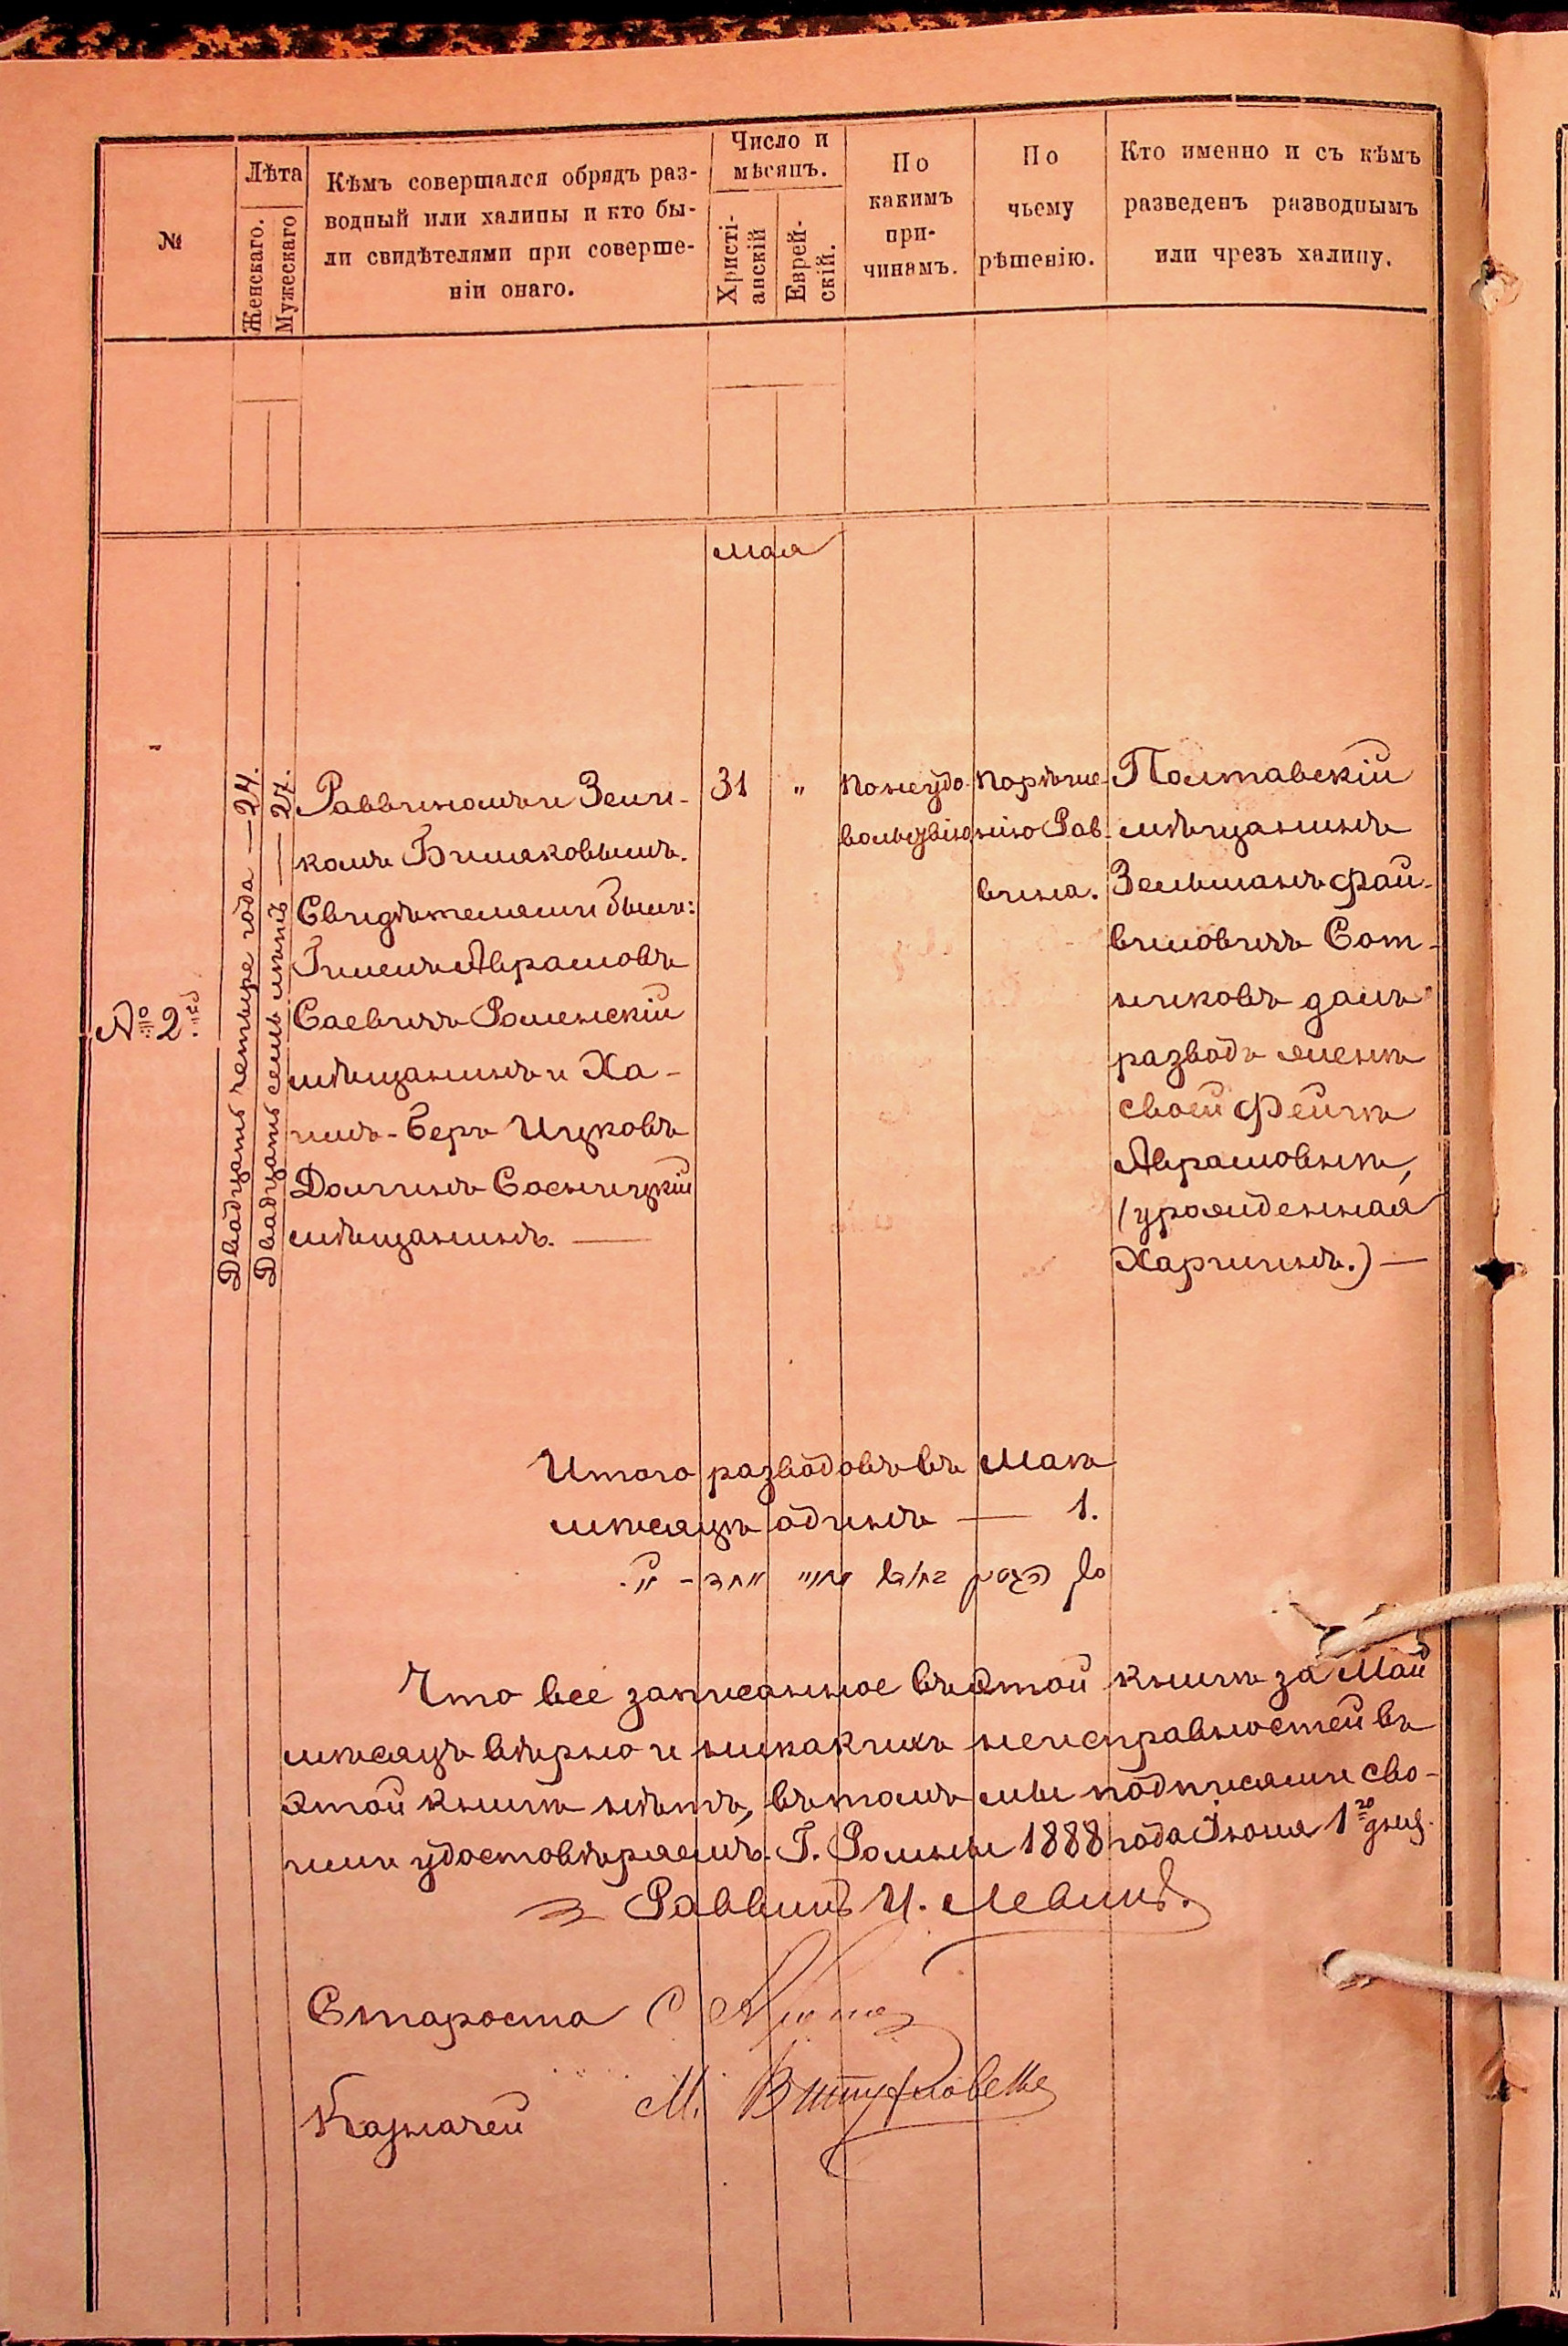 №
Лѣта
Женскаго.
Мужескаго
Кѣмъ совершался обрядъ раз-
водный или халицы и кто бы-
ли свидѣтелями при соверше-
ніи онаго.
Число и
мѣсяцъ.
Христі-
анскій
Еврей-
скій.
По
какимъ
при-
чинамъ.
По
чьему
рѣшенію.
Кто именно и съ кѣмъ
разведенъ разводнымъ
или чрезъ халицу.
мая
№ 2й
Двадцать четыре года — 24.
Двадцать семь лѣтъ — 27.
Раввиномъ Зели-
комъ Бишаковымъ.
Свидѣтелями были:
Гилель Аврамовъ
Саевичъ Роменскій
мѣщанинъ и Ха-
имъ-Беръ Ицковъ
Долгинъ Сосницкій
мѣщанинъ. —
31
"
По неудо-
вольствію
По рѣше-
нію Рав-
вина.
Полтавскій
мѣщанинъ
Зельманъ Фай-
вишовичъ Сот-
никовъ далъ
разводъ женѣ
своей Фейгѣ
Аврамовнѣ,
(урожденная
Харгинъ.) —
Итого разводовъ въ Маѣ
мѣсяцѣ одинъ — 1.
Что все записанное въ этой книгѣ за Май
мѣсяцъ вѣрно и никакихъ неисправностей въ
этой книгѣ нѣтъ, въ томъ мы подписями сво-
ими удостовѣряемъ. Г. Ромны 1888 года Іюня 1го дня.
Раввинъ И. Левинъ.
Староста С
Казначей М.